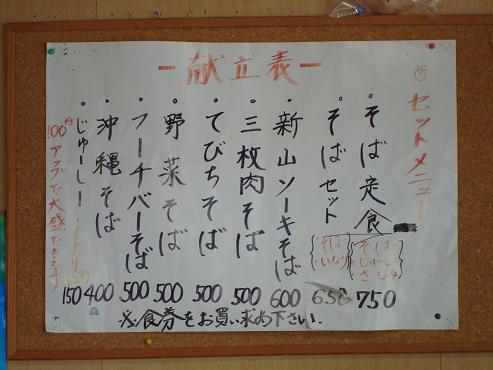 －献立表－
セットメニュー
・そば定食
そば
じゅーしー
さしみ
750
・そばセット
そば
いなり
650
・新山ソーキそば
600
・三枚肉そば
500
・てびちそば
500
・野菜そば
500
・フーチバーそば
500
・沖縄そば
400
・じゅーしー
150
100円アップで大盛できます
※食券をお買い求め下さい.